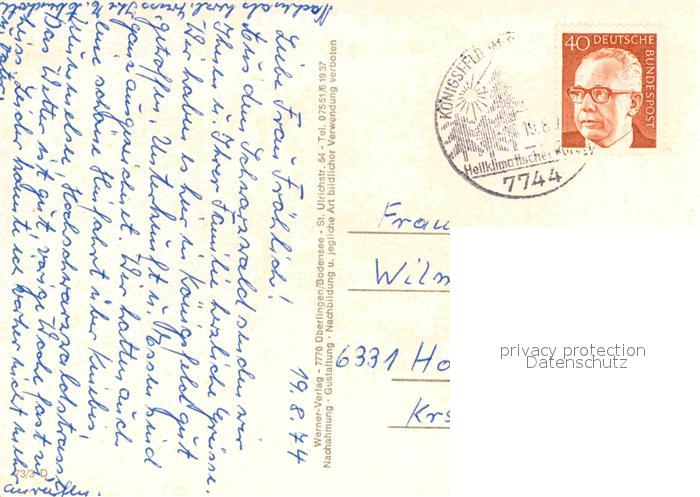 19.8.74
Liebe Frau Fröhlich!
Aus dem Schwarzwald senden wir
Ihnen u. Ihrer Familie herzliche Grüsse.
Wir haben es hier in Königsfeld gut
getroffen, Unterkunft u. Essen sind
ganz ausgezeichnet. Wir hatten auch
eine schöne Hinfahrt über Kniebis,
Hochschwarzwaldstrasse
Das Wetter ist gut, vorige Woche fast zu
heiss. Leider konnte ich vorher nicht mehr
anrufen.
Werner-Verlag - 7770 Überlingen/Bodensee - St. Ulrichstr. 54 - Tel. 07551/61937
Nachahmung - Gestaltung - Nachbildung u. jegliche Art bildlicher Verwendung verboten
73/3 D
KÖNIGSFELD
19.8.
Heilklimatischer
7744
40 DEUTSCHE
BUNDESPOST
Frau
Wilm
6331 Ho
Krs
privacy protection
Datenschutz